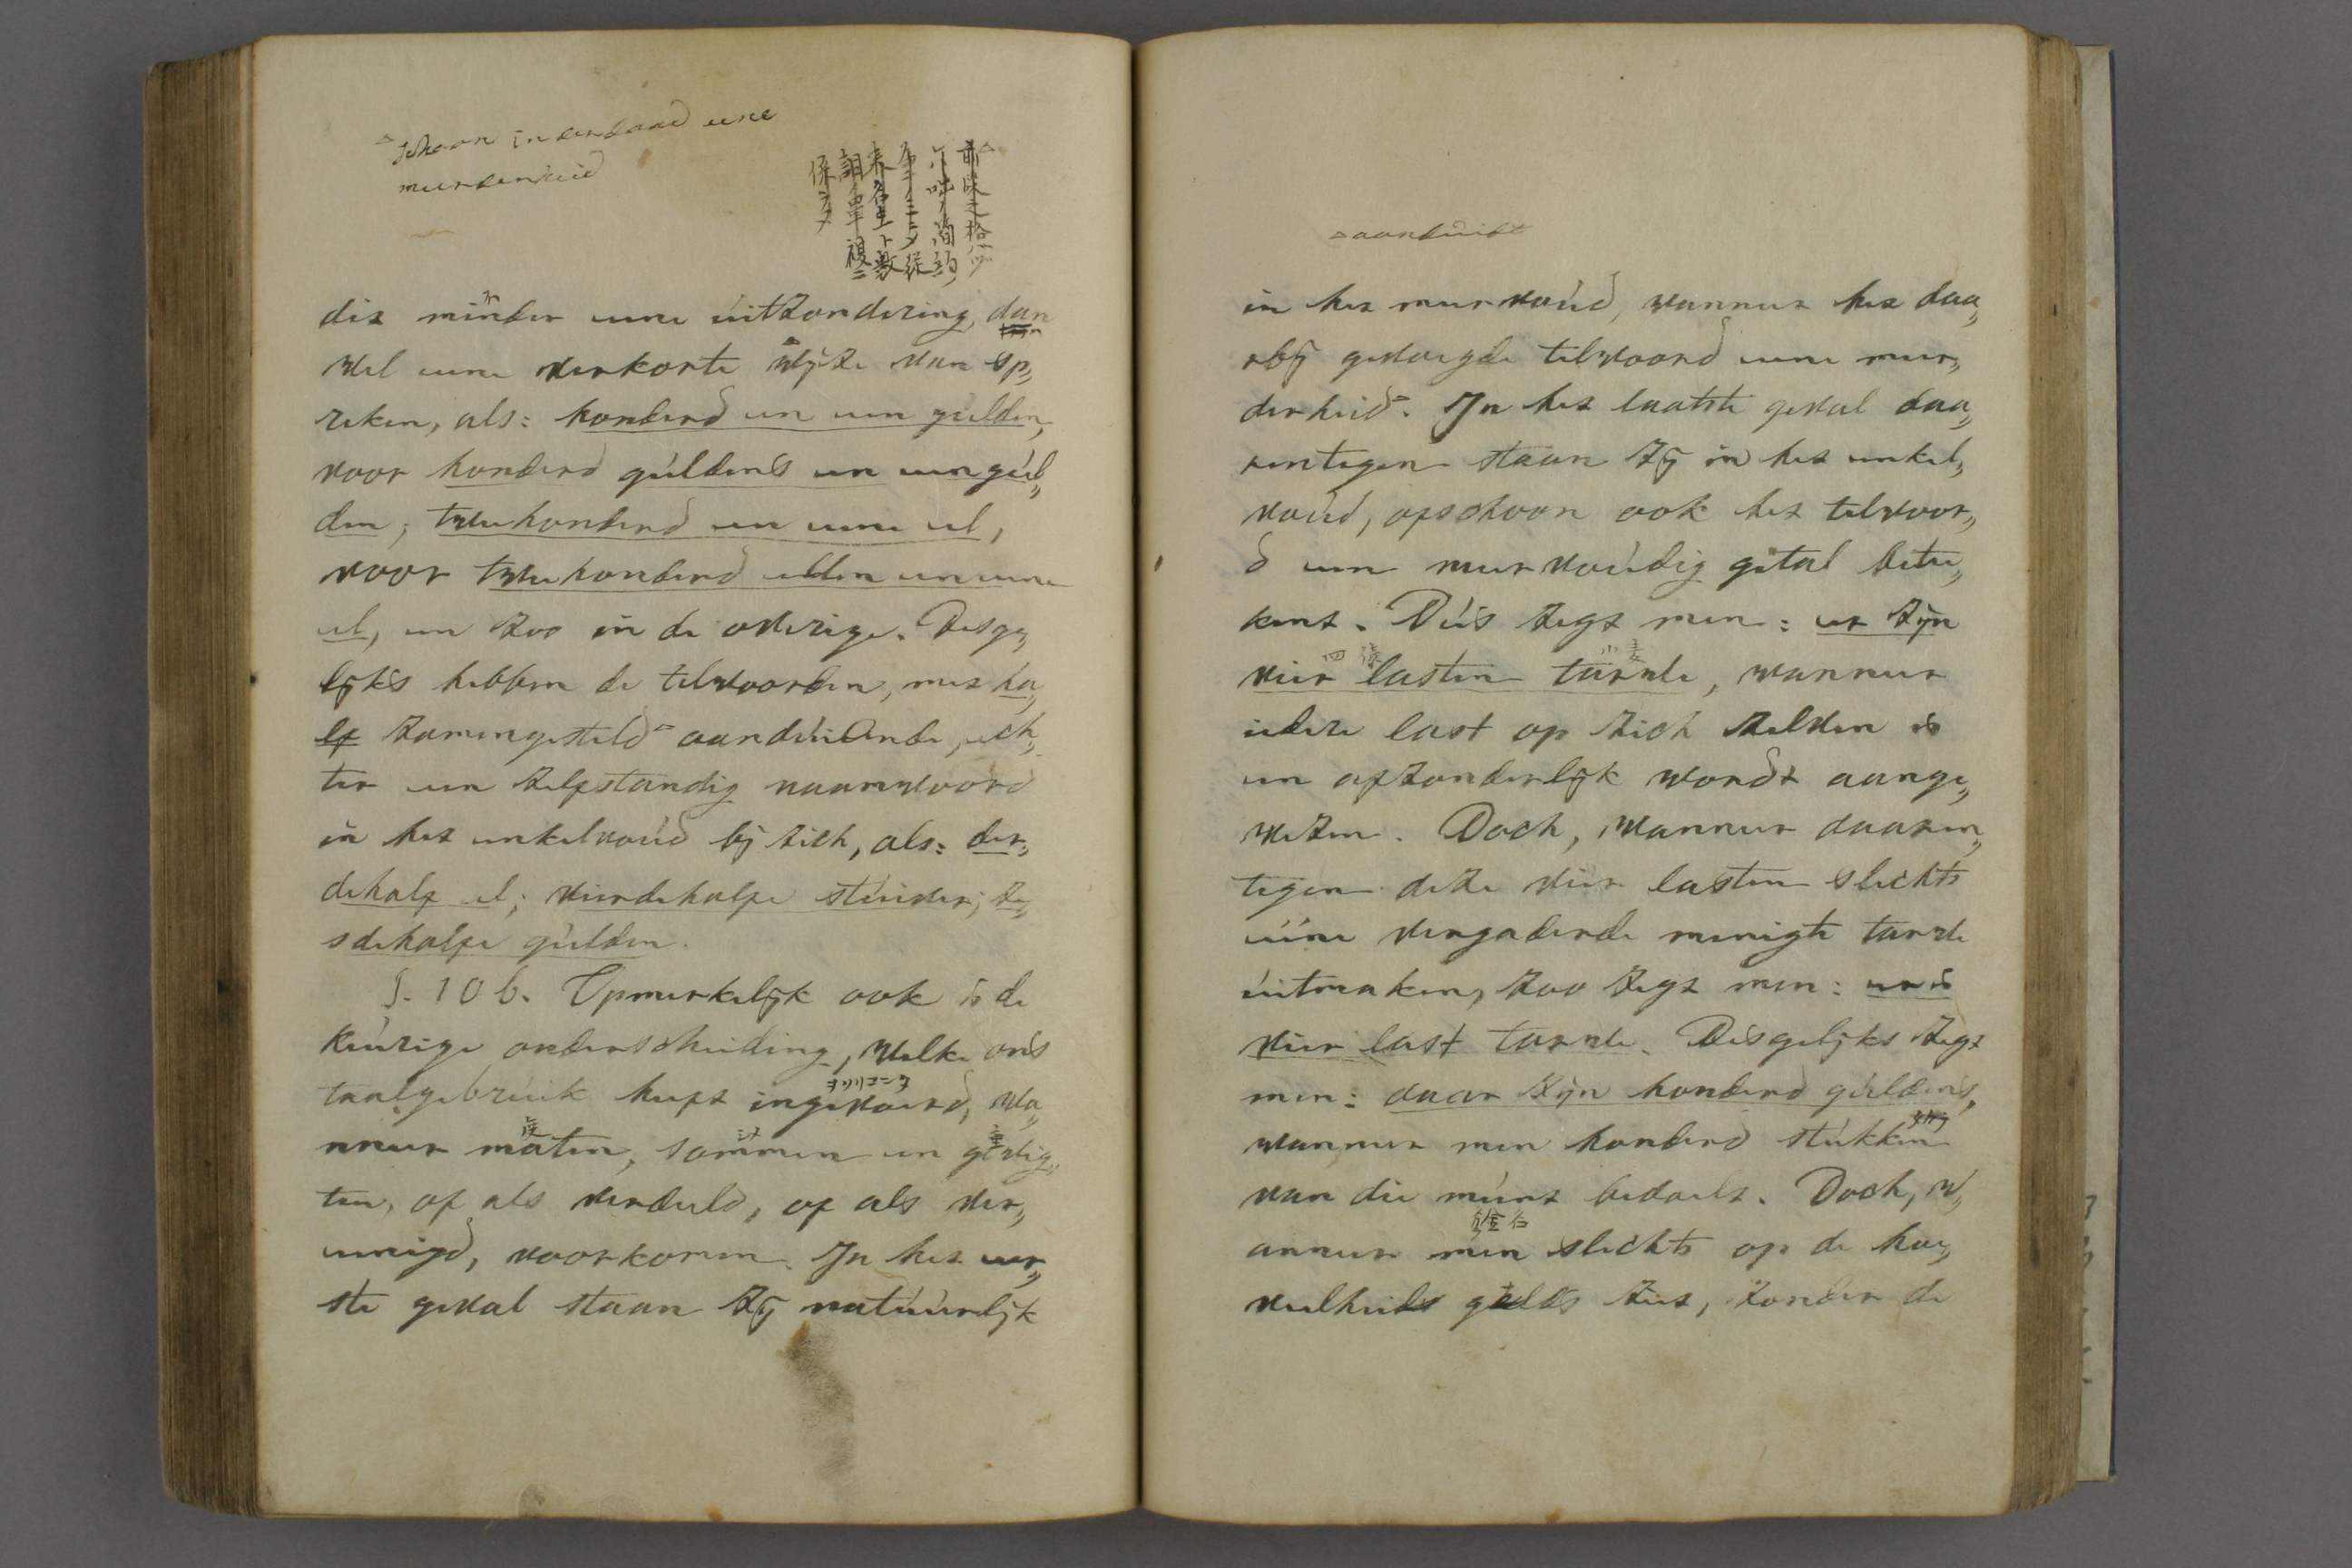 schoon inderdaad eene
meerderheid
dit minder eene uitzondering, dan
wel eene verkorte wijze van sp„
reken, als: honderd en een gulden,
voor honderd guldens en een gul„
den; tweehonderd en eene el,
voor tweehonderd ellen en eene
el, en zoo in de overige. Desge„
lijks hebben de telwoorden, met ha„
lf zamengesteld aanduidende, ech„
ter een zelfstandig naamwoord
in het enkelvoud bij zich, als: der„
dehalf el; vierdehalve stuiver; ze„
sdehalve gulden.
§. 106. Opmerkelijk ook is de
keurige onderscheiding, welke ons
taalgebruik heeft ingevoerd, wa„
nneer maten, sommen en gewig„
ten, of als verdeeld, of als ver„
eenigd, voorkomen. In het eer„
ste geval staan zij natuurlijk
aanduidt
in het meervoud, wanneer het daa„
rbij gevoegde telwoord eene meer„
derheid. In het laatste geval daa„
rentegen staan zij in het enkel„
voud, ofschoon ook het telwoor„
d een meervoudig getal betee„
kent. Dus zegt men: er zijn
四
vier lasten tarwe, wanneer
iedere last op zich zelven is
en afzonderlijk wordt aange„
wezen. Doch, wanneer daaren„
tegen deze vier lasten slechts
eéne vergaderde menigte tarwe
uitmaken, zoo zegt men: er is
vier last tarwe. Desgelijks zegt
men: daar zijn honderd guldens,
wanneer men honderd stukken
van die munt bedoelt. Doch, w„
anneer men slechts op de hoe„
veelheid gelds ziet, zonder de